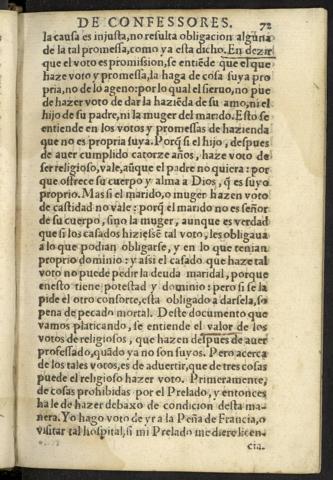 DE CONFESSORES. 72
la causa es injusta, no resulta obligacion algũna
de la tal promessa, como ya esta dicho. En dezir
que el voto es promission, se entiẽde que el que
haze voto y promessa, la haga de cosa suya pro
pria, no de lo ageno: por lo qual el sieruo, no pue
de hazer voto de dar la haziẽda de su amo, ni el
hijo de su padre, ni la muger del marido. Esto se
entiende en los votos y promessas de hazienda
que no es propria suya. Porq̃ si el hijo, despues
de auer cumplido catorze años, haze voto de
ser religioso, vale, aũque el padre no quiera: por
que ofrece su cuerpo y alma a Dios, q̃ es suyo
proprio. Mas si el marido, o muger hazen voto
de castidad no vale: porq̃ el marido no es señor
de su cuerpo, sino la muger, aunque es verdad
que si los casados hiziessẽ tal voto, les obligaua
a lo que podian obligarse, y en lo que tenian
proprio dominio: y assi el casado que haze tal
voto no puede pedir la deuda maridal, porque
enesto tiene potestad y dominio: pero si se la
pide el otro consorte, esta obligado a darsela, so
pena de pecado mortal. Deste documento que
vamos platicando, se entiende el valor de los
votos de religiosos, que hazen despues de auer
professado, quãdo ya no son suyos. Pero acerca
de los tales votos, es de aduertir, que de tres cosas
puede el religioso hazer voto. Primeramente,
de cosas prohibidas por el Prelado, y entonces
ha le de hazer debaxo de condicion desta ma-
nera. Yo hago voto de yr a la Peña de Francia, o
visitar tal hospital, si mi Prelado me diere licen-
cia.